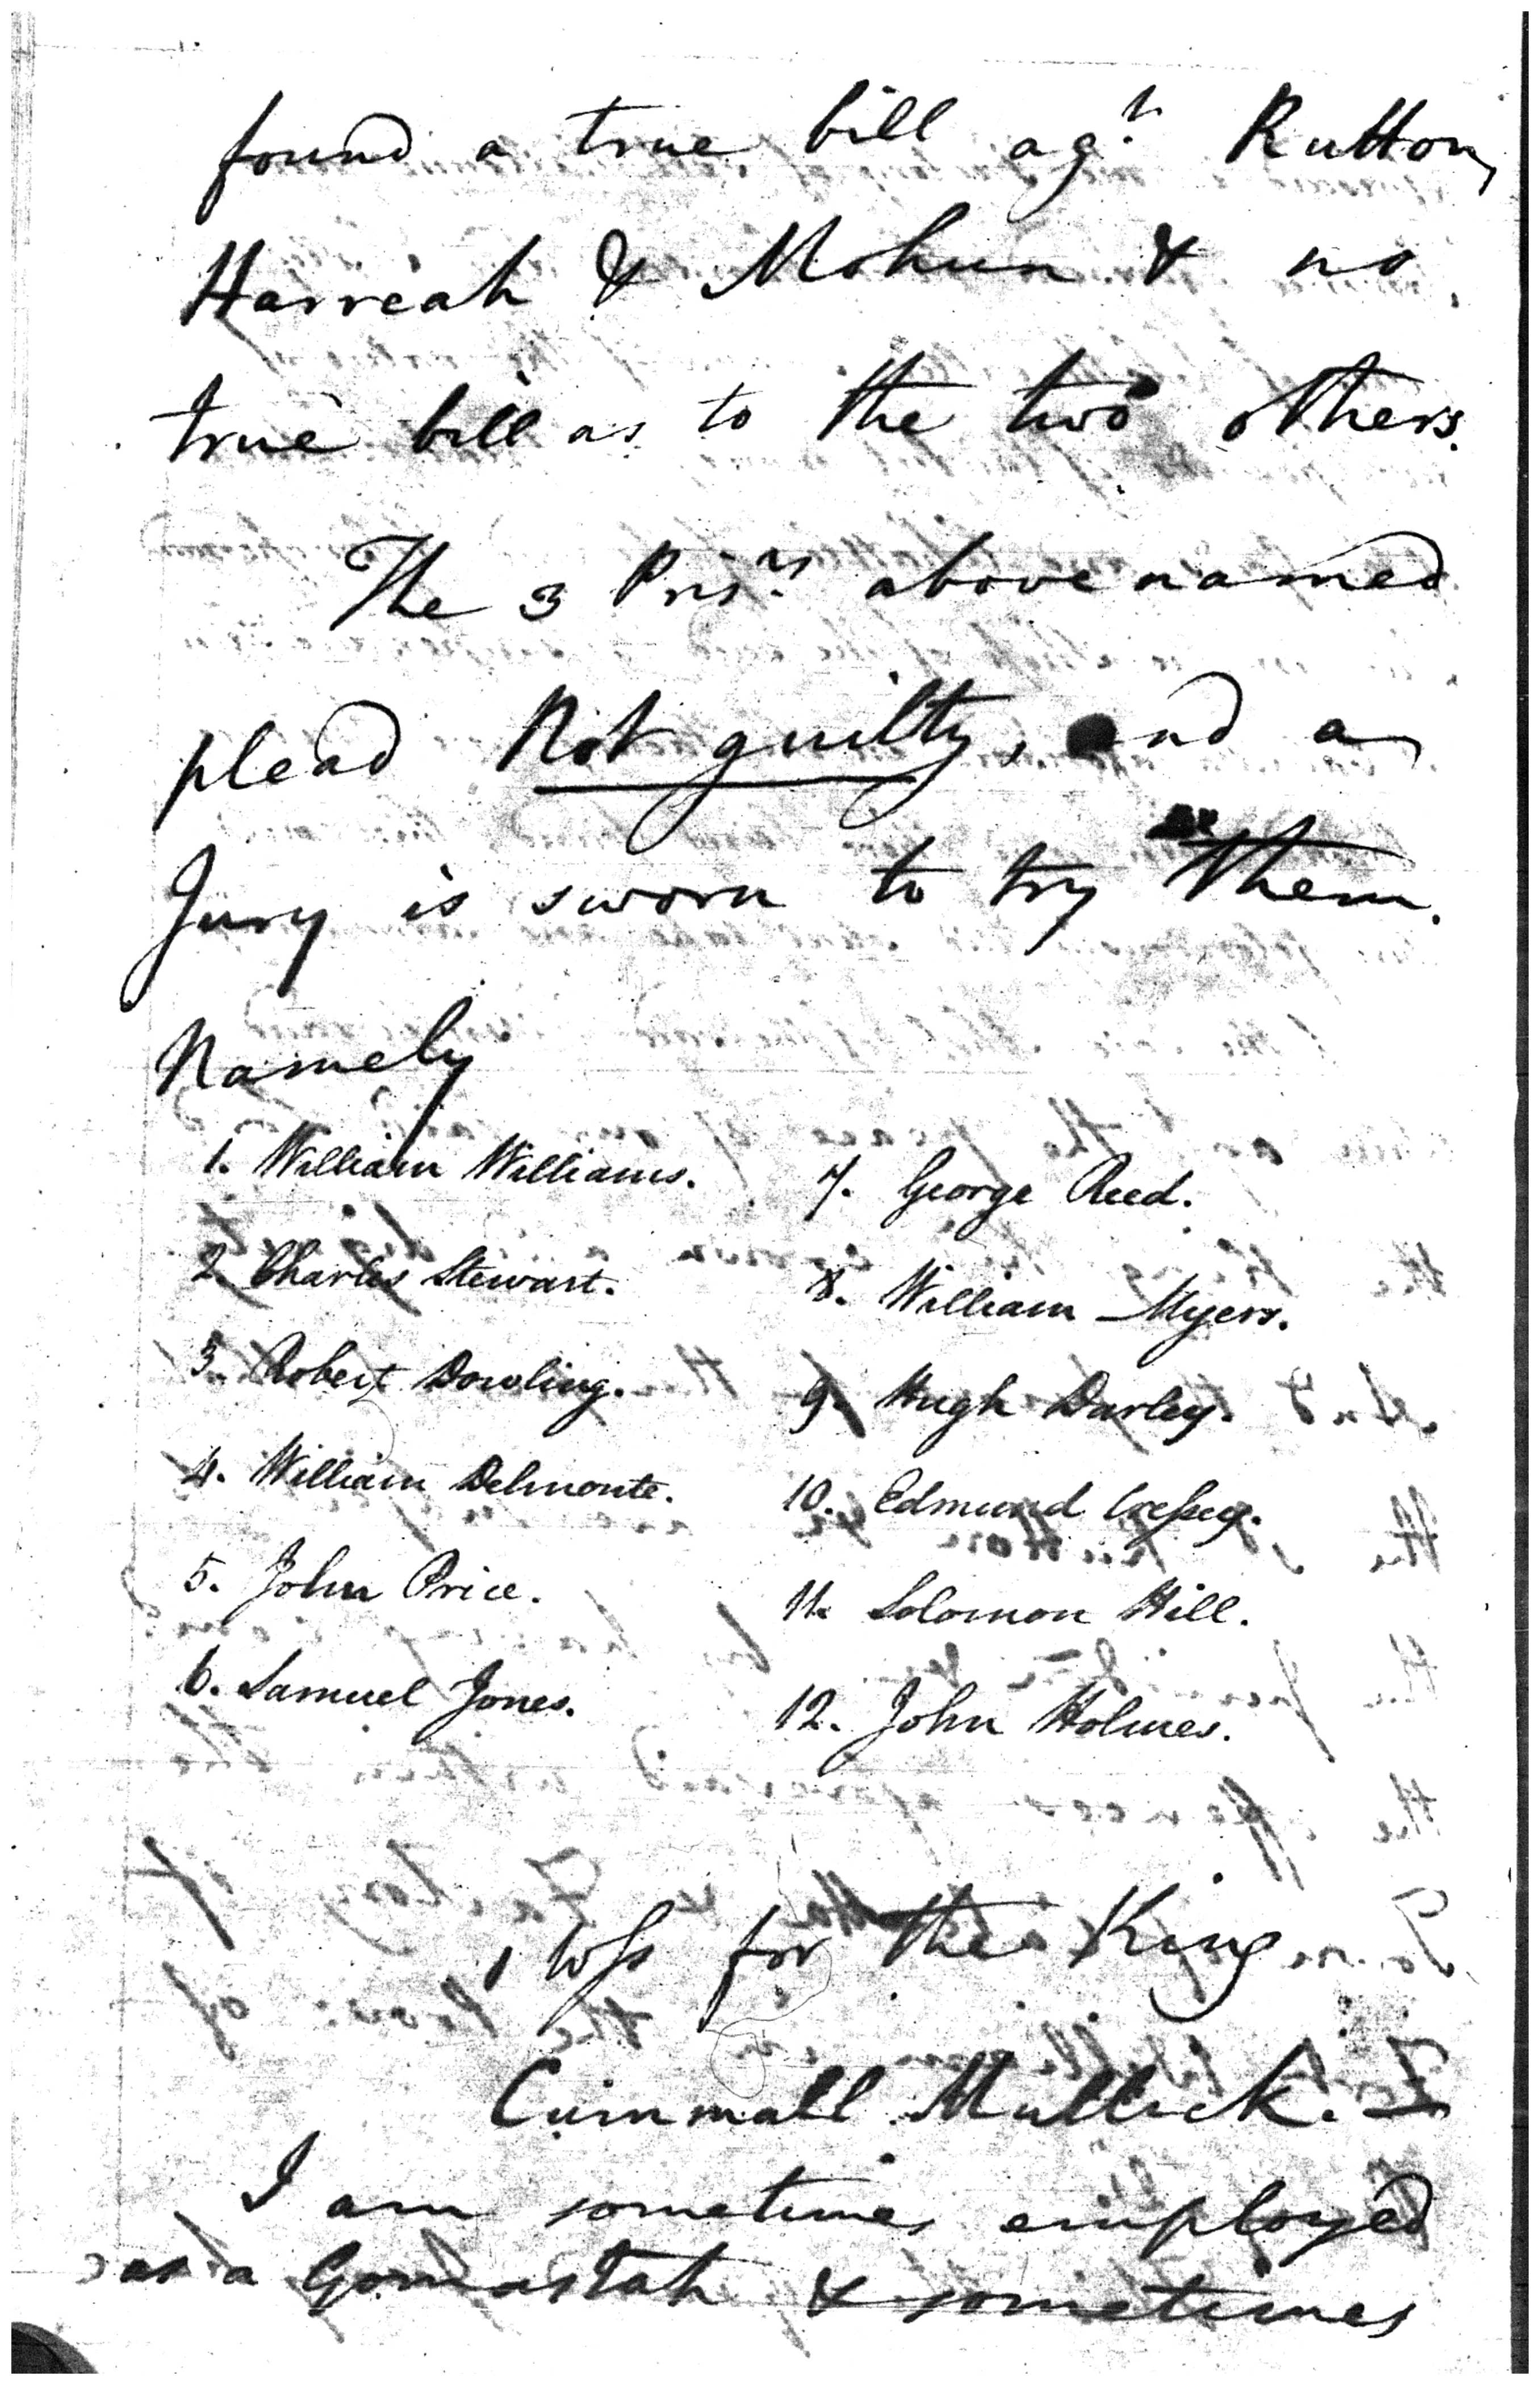 found a true bill agt. Rutton,
Harreah & Mohun & no
true bill as to the two others.
The 3 Prisrs. above named
plead Not guilty, and a
Jury is sworn to try them.
Namely
1. William Williams.
2. Charles Stewart.
3. Robert Dowling.
4. William Delmonte.
5. John Price.
6. Samuel Jones.
7. George Reed.
8. William Myers.
9. Hugh Darley.
10. Edmund Creſsey.
11. Solomon Hill.
12. John Holmes.
1 Wſs for the King
Cummall Mullick.
I am sometimes employed
as a Gomastah & sometimes